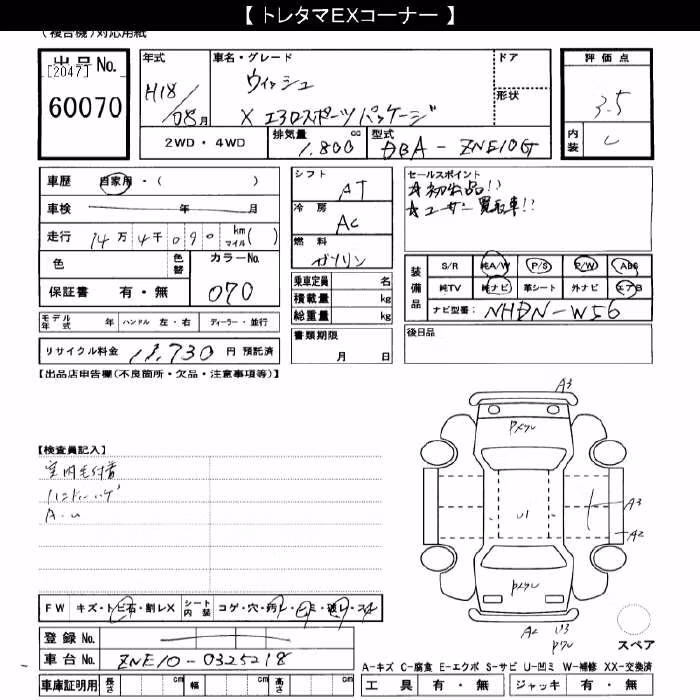 【 トレタマEXコーナー 】
(複合機)対応用紙
出品No.
[2047]
60070
年式
H18/08月
車名・グレード
ウィッシュ
X エアロスポーツパッケージ
ドア
形状
評価点
3.5
内装
C
2WD・4WD
排気量 1.800 cc
型式 DBA-ZNE10G
車歴 自家用・( )
車検 年 月
走行 14万4千090 km マイル( )
色
色替
カラーNo.
070
保証書 有・無
モデル年式 年 ハンドル 左・右 ディーラー・並行
リサイクル料金 13,730 円 預託済
シフト
AT
冷房
AC
燃料
ガソリン
乗車定員 名
積載量 kg
総重量 kg
書類期限
月 日
セールスポイント
☆初出品!!
☆ユーザー買取車!!
装備品
S/R 純A/W P/S P/W ABS
純TV 純ナビ 革シート 外ナビ エアB
ナビ型番: NHDN-W56
後日品
【出品店申告欄(不良箇所・欠品・注意事項等)】
【検査員記入】
室内毛付着
A・U
A3
U1
A3
A2
A2 U3
FW キズ・トビ石・割レX シート内装 コゲ・穴・汚レ・シミ・破レ・スレ
登録No.
車台No. ZNE10-0325218
車庫証明用 長さ cm 幅 cm 高さ cm
スペア
A-キズ C-腐食 E-エクボ S-サビ U-凹ミ W-補修 XX-交換済
工具 有・無 ジャッキ 有・無